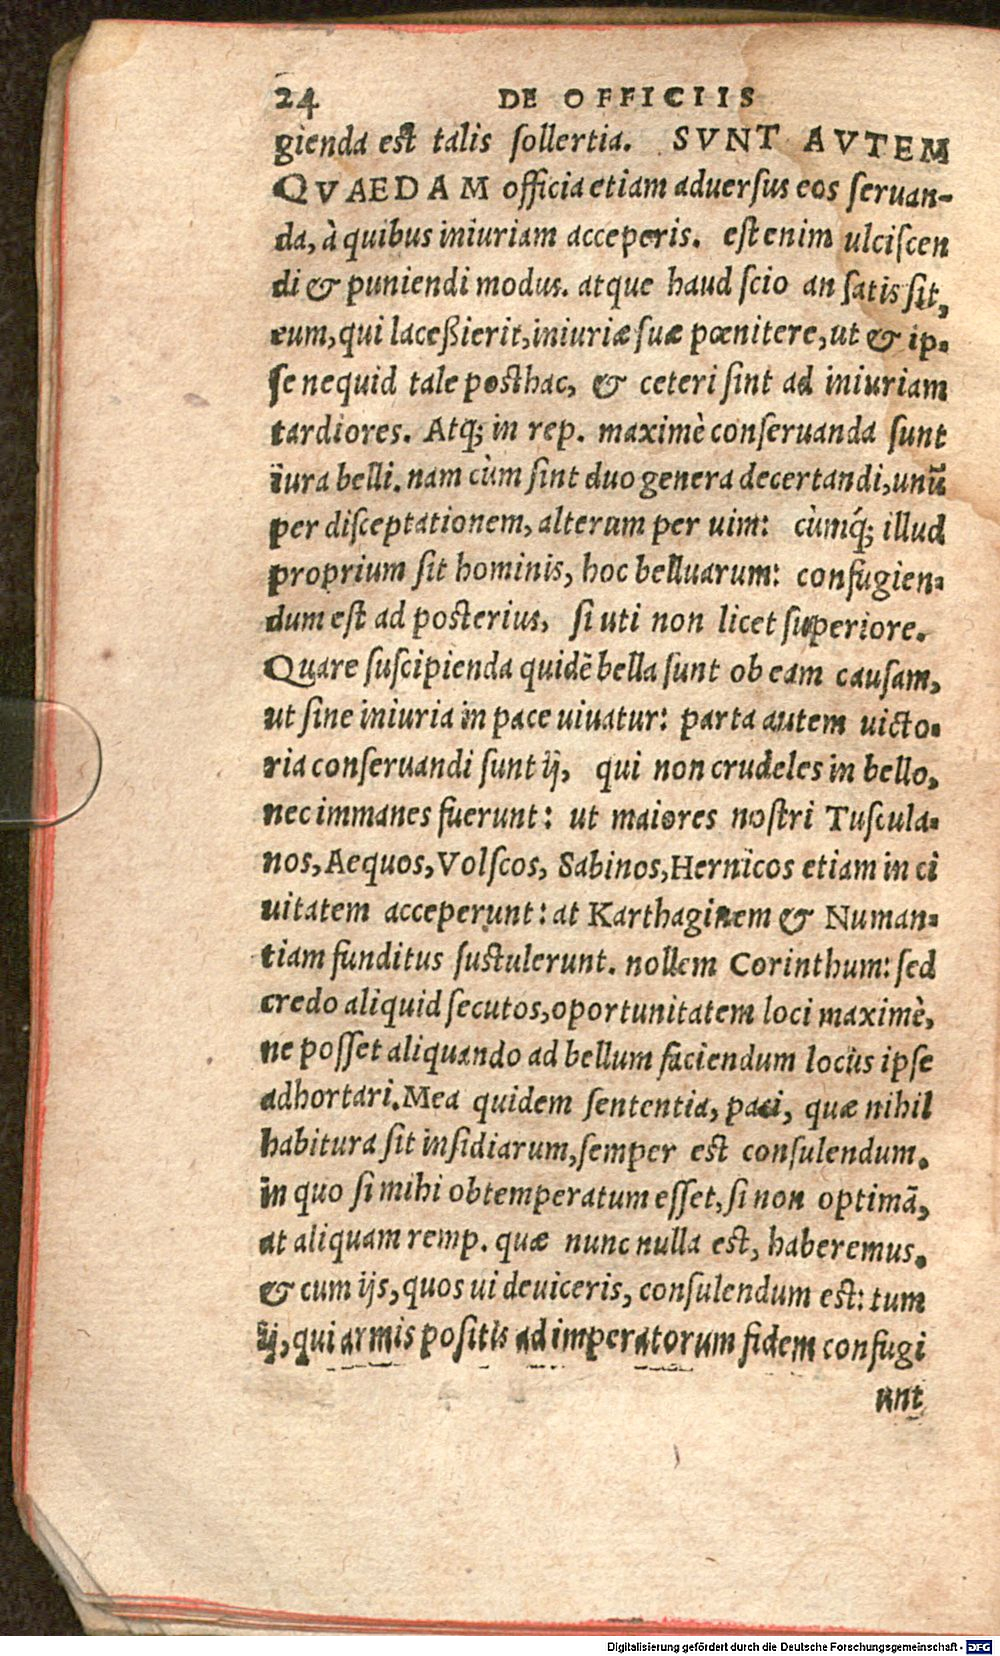 24 DE OFFICIIS
gienda est talis sollertia. SVNT AVTEM
QVAEDAM officia etiam aduersus eos seruan-
da, à quibus iniuriam acceperis. est enim ulciscen
di & puniendi modus. atque haud scio an satis sit,
eum, qui laceßierit, iniuriæ suæ pœnitere, ut & ip-
se nequid tale posthac, & ceteri sint ad iniuriam
tardiores. Atq; in rep. maximè conseruanda sunt
iura belli. nam cùm sint duo genera decertandi, unũ
per disceptationem, alterum per uim: cùmq́; illud
proprium sit hominis, hoc belluarum: confugien-
dum est ad posterius, si uti non licet superiore.
Quare suscipienda quidẽ bella sunt ob eam causam,
ut sine iniuria in pace uiuatur: parta autem uicto-
ria conseruandi sunt ij, qui non crudeles in bello,
nec immanes fuerunt: ut maiores nostri Tuscula-
nos, Aequos, Volscos, Sabinos, Hernicos etiam in ci
uitatem acceperunt: at Karthaginem & Numan-
tiam funditus sustulerunt. nollem Corinthum: sed
credo aliquid secutos, oportunitatem loci maximè,
ne posset aliquando ad bellum faciendum locus ipse
adhortari. Mea quidem sententia, paci, quæ nihil
habitura sit insidiarum, semper est consulendum.
in quo si mihi obtemperatum esset, si non optimã,
at aliquam remp. quæ nunc nulla est, haberemus.
& cum ijs, quos ui deuiceris, consulendum est: tum
ij, qui armis positis ad imperatorum fidem confugi
unt
Digitalisierung gefördert durch die Deutsche Forschungsgemeinschaft - DFG